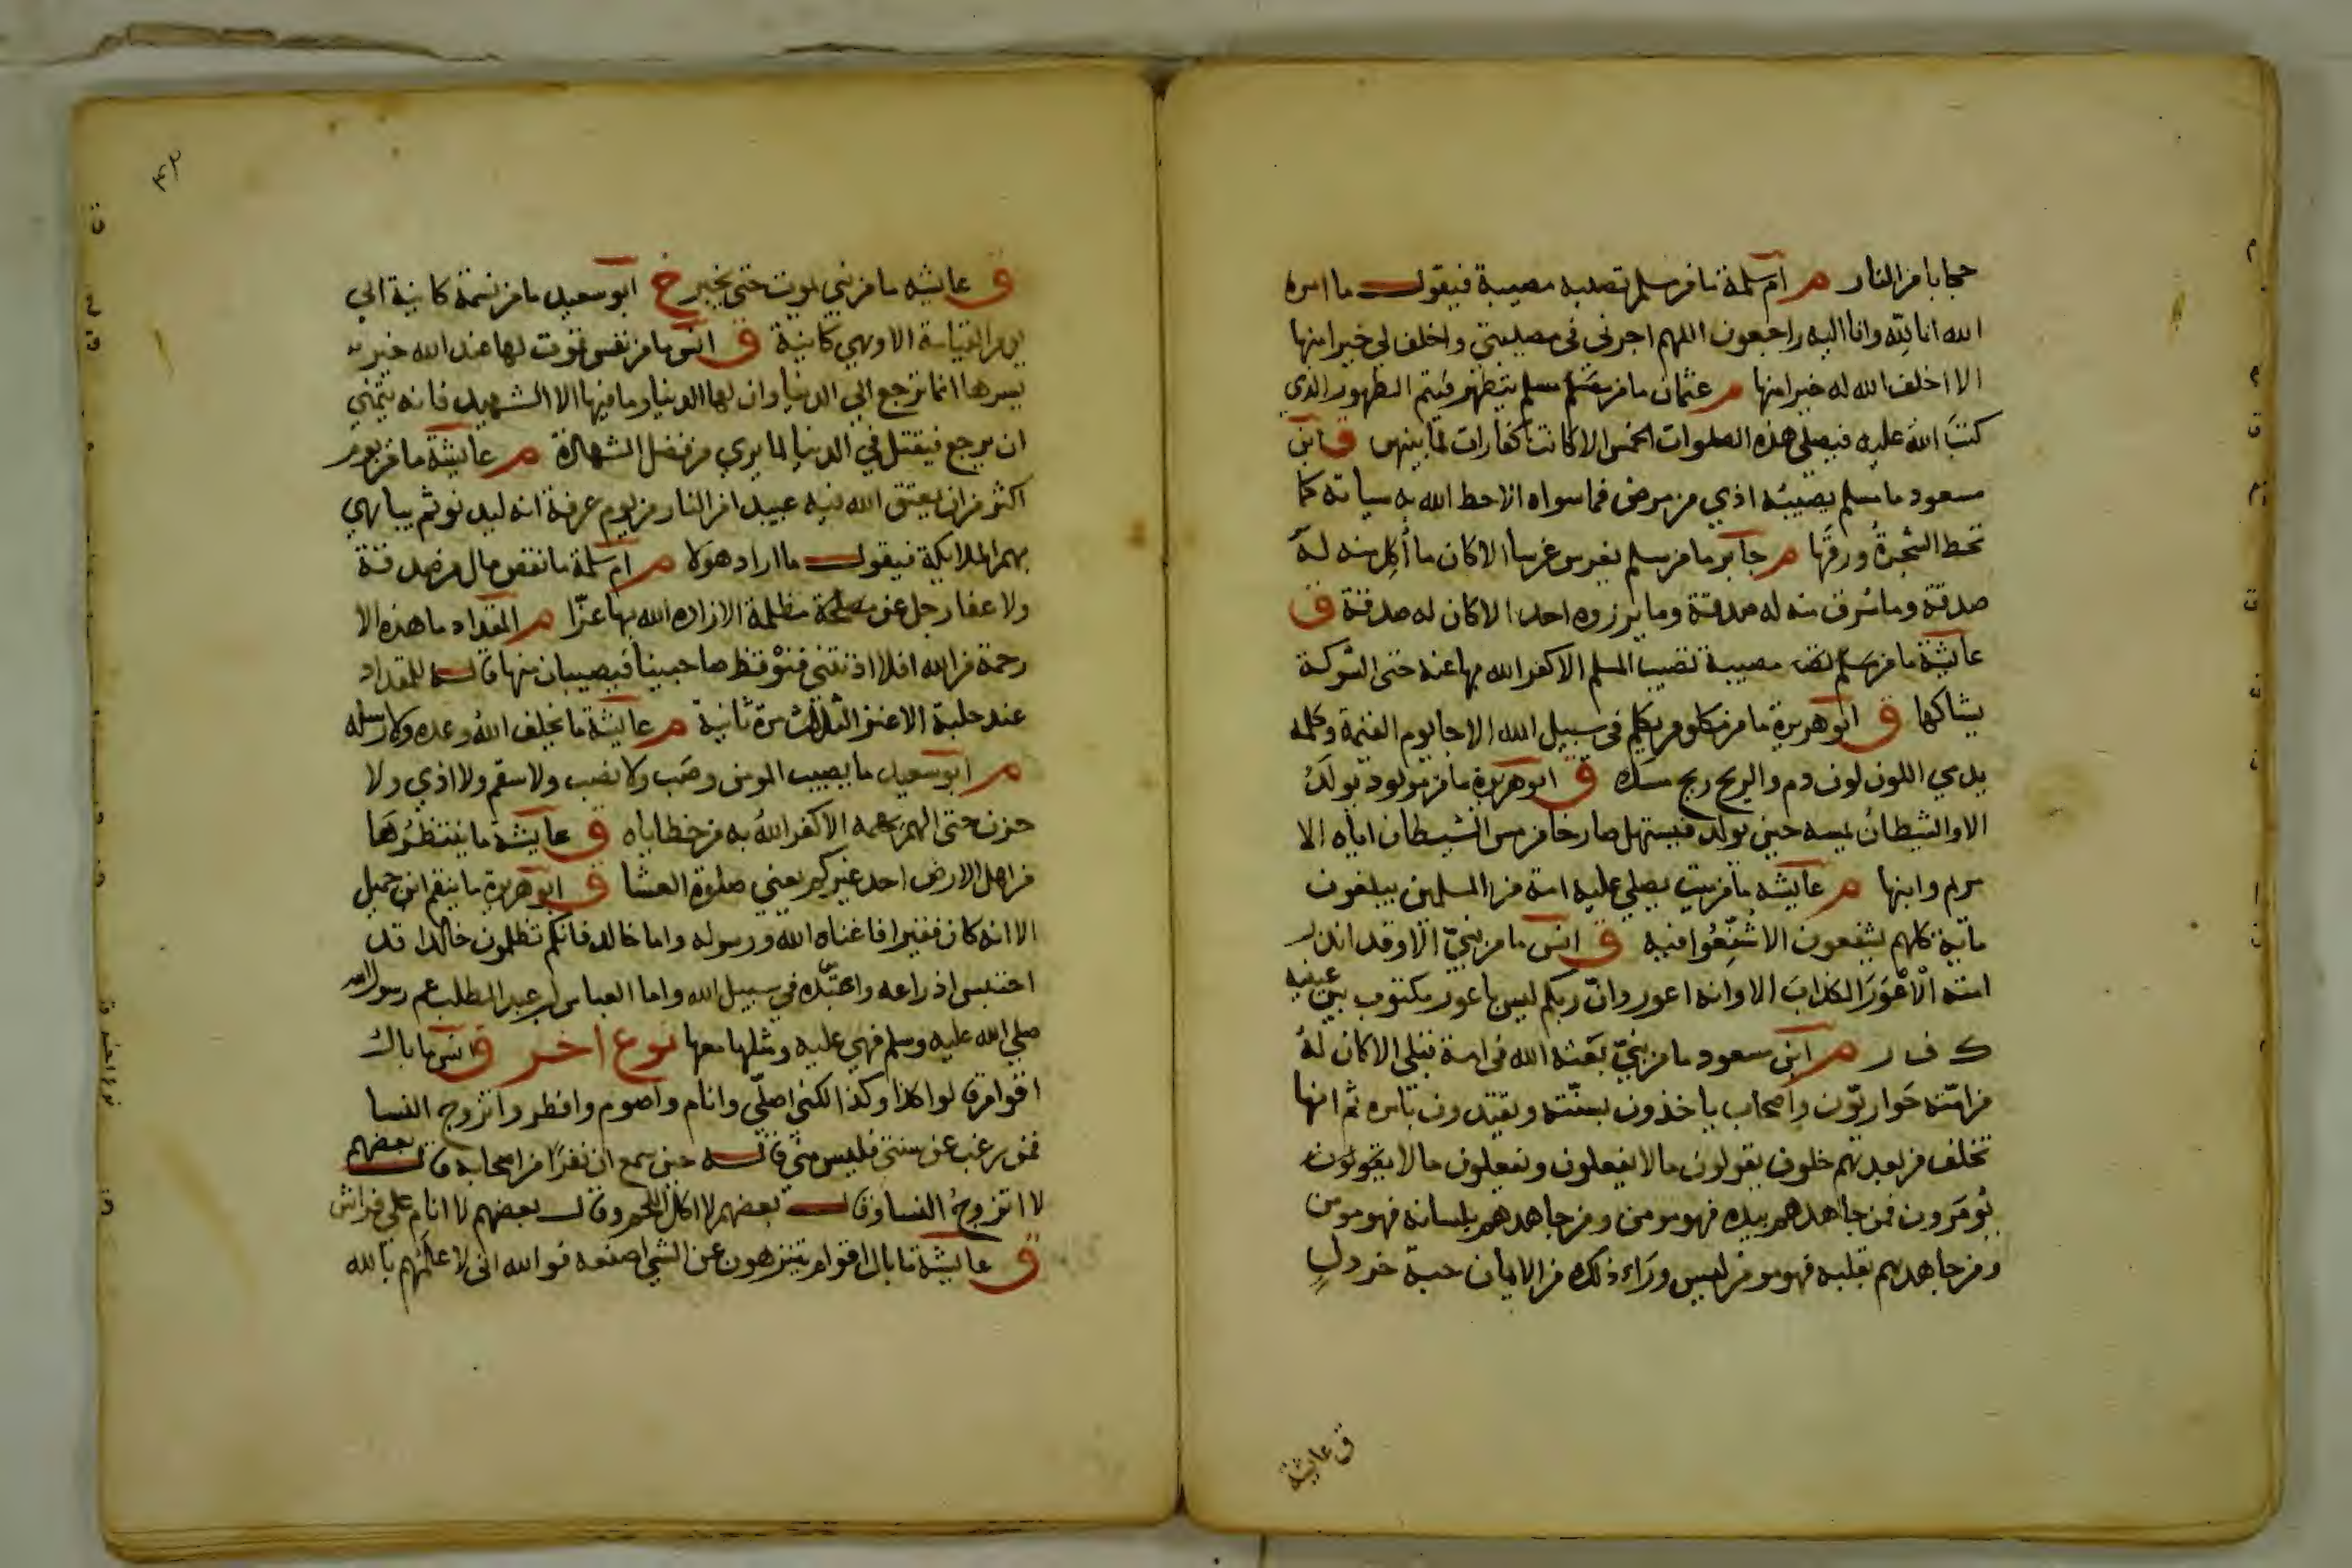 حجابا من النار م ام سلمة ما من مسلم تصيبه مصيبة فيقول ما امره
الله انا لله وانا اليه راجعون اللهم اجرني في مصيبتي واخلف لي خيرا منها
الا اخلف الله له خيرا منها م عثمان ما من مسلم يتطهر فيتم الطهور الذي
كتب الله عليه فيصلي هذه الصلوات الخمس الا كانت كفارات لما بينهن ق ابن
مسعود ما مسلم يصيبه اذي من مرض فما سواه الا حط الله به سياته كما
تحط الشجرة ورقها م جابر ما من مسلم يغرس غرسا الا كان ما أكل منه له
صدقة وما سرق منه له صدقة وما يرزوه احد الا كان له صدقة ق
عايشة ما من مصيبة تصيب المسلم الا كفر الله بها عنه حتى الشوكة
يشاكها ق ابو هريرة ما من مكلوم يكلم في سبيل الله الا جا يوم القيمة وكلمه
يدمي اللون لون دم والريح ريح مسك ق ابو هريرة ما من مولود يولد
الا والشيطان يمسه حين يولد فيستهل صارخا من مس الشيطان اياه الا
مريم وابنها م عايشه ما من ميت يصلي عليه امة من المسلمين يبلغون
ماية كلهم يشفعون الا شفعوا فيه ق انس ما من نبي الا وقد انذر
امته الاعور الكذاب الا وانه اعور وان ربكم ليس باعور مكتوب بين عينيه
ك ف ر م ابن مسعود ما من نبي بعثه الله في امة قبلي الا كان له
من امته حواريون واصحاب ياخذون بسنته ويقتدون بامره ثم انها
تخلف من بعدهم خلوف يقولون ما لا يفعلون ويفعلون ما لا
يؤمرون فمن جاهدهم بيده فهو مومن ومن جاهدهم بلسانه فهو مومن
ومن جاهدهم بقلبه فهو مومن ليس وراء ذلك من الايمان حبة خردل
ق عايشة
٤٢
ق عايشه ما من نبي يموت حتى يخير خ ابو سعيد ما من نسمة كاينة الي
يوم القيامة الا وهي كاينة ق انس ما من نفس تموت لها عند الله خير
يسرها انها ترجع الي الدنيا وان لها الدنيا وما فيها الا الشهيد فانه يتمني
ان يرجع فيقتل في الدنيا لما يري من فضل الشهادة م عايشة ما من يوم
اكثر من ان يعتق الله فيه عبيدا من النار من يوم عرفة انه ليدنو ثم يباهي
بهم الملايكة فيقول ما اراد هولا م ام سلمة ما نقص مال من صدقة
ولا عفا رجل عن مظلمة الا زاده الله بها عزا م المقداد ما هذه الا
رحمة من الله افلا اذنتني فنوقظ صاحبينا فيصيبان منها قاله للمقداد
عند حلبة الاعنز الثلاث مرة ثانية م عايشة ما يخلف الله وعده ولا رسله
م ابو سعيد ما يصيب المومن وصب ولا نصب ولا سقم ولا اذي ولا
حزن حتى الهم يهمه الا كفر الله به من خطاياه ق عايشة ما ينتظرها
من اهل الارض احد غيركم يعني صلوة العشا ق ابو هريرة ما ينقم ابن جميل
الا انه كان فقيرا فاغناه الله ورسوله واما خالد فانكم تظلمون خالدا قد
احتبس ادراعه واعتده في سبيل الله واما العباس بن عبد المطلب عم رسول الله
صلي الله عليه وسلم فهي عليه ومثلها معها نوع اخر ق انس ما بال
اقوام قالوا كذا وكذا لكني اصلي وانام واصوم وافطر واتزوج النسا
فمن رغب عن سنتي فليس مني قاله حين سمع ان نفرا من اصحابه قال بعضهم
لا اتزوج النسا وقال بعضهم لا اكل اللحم وقال بعضهم لا انام علي فراش
ق عايشة ما بال اقوام يتنزهون عن الشي اصنعه فوالله اني لا علمهم بالله